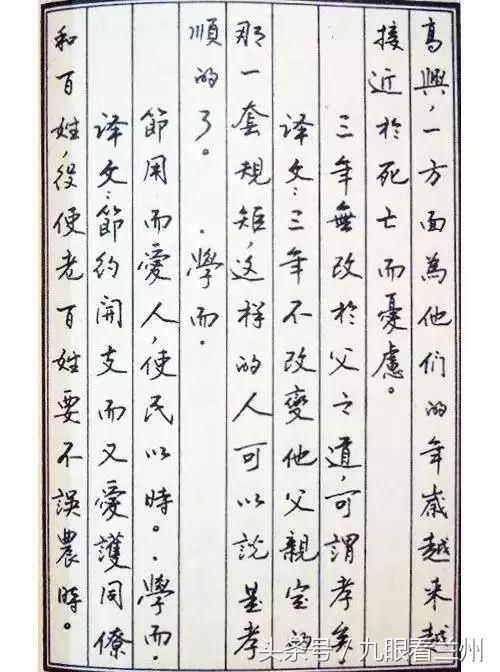 高興，一方面為他们的年歲越来越
接近於死亡而憂慮。
三年無改於父之道，可謂孝矣
译文：三年不改變他父親定的
那一套規矩，这样的人可以説是孝
順的了。·學而·
節用而愛人，使民以時。·學而·
译文：節约開支而又愛護同僚
和百姓，役使老百姓要不誤農時。
头条号／九眼看兰州